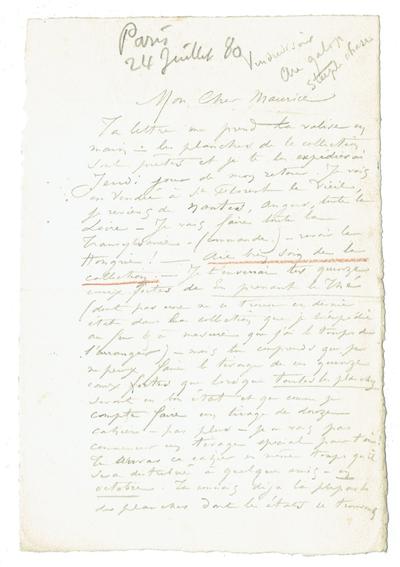 Paris
24 Juillet 80
Vendredi soir
au galop
steeple chase
Mon Cher Maurice
Ta lettre me prend la valise en
main – les planches de la collection
sont prêtes et je te les expédierai
Jeudi jour de mon retour. Je vais
en Vendée à St Florent le Vieil,
je reviens de Nantes, Angers, toute la
Loire – Je vais faire toute la
Transylvanie – (commande) – revoir la
Hongrie ! – Aie bien soin de la
collection. – Je t'enverrai les quinze
eaux fortes de En prenant le Thé
(dont pas une ne se trouve en dernier
état dans la collection que je t'expédie
au fur & à mesure que j'ai le temps de
l'arranger) – mais tu comprends que je
ne peux faire le tirage de ces quinze
eaux fortes que lorsque toutes les planches
seront en bon état et que comme je
compte faire un tirage de douze
cahiers – pas plus – je ne vais pas
commencer un tirage spécial pour toi !
Tu auras ce cahier en même temps qu'il
sera distribué à quelques amis – en
octobre. Tu auras déjà la plupart
des planches dont les états se trouvent